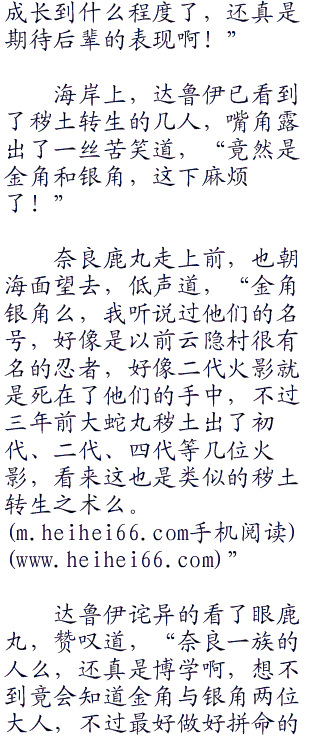 成长到什么程度了，还真是
期待后辈的表现啊！”
海岸上，达鲁伊已看到
了秽土转生的几人，嘴角露
出了一丝苦笑道，“竟然是
金角和银角，这下麻烦
了！”
奈良鹿丸走上前，也朝
海面望去，低声道，“金角
银角么，我听说过他们的名
号，好像是以前云隐村很有
名的忍者，好像二代火影就
是死在了他们的手中，不过
三年前大蛇丸秽土出了初
代、二代、四代等几位火
影，看来这也是类似的秽土
转生之术么。
(m.heihei66.com手机阅读)
(www.heihei66.com)”
达鲁伊诧异的看了眼鹿
丸，赞叹道，“奈良一族的
人么，还真是博学啊，想不
到竟会知道金角与银角两位
大人，不过最好做好拼命的